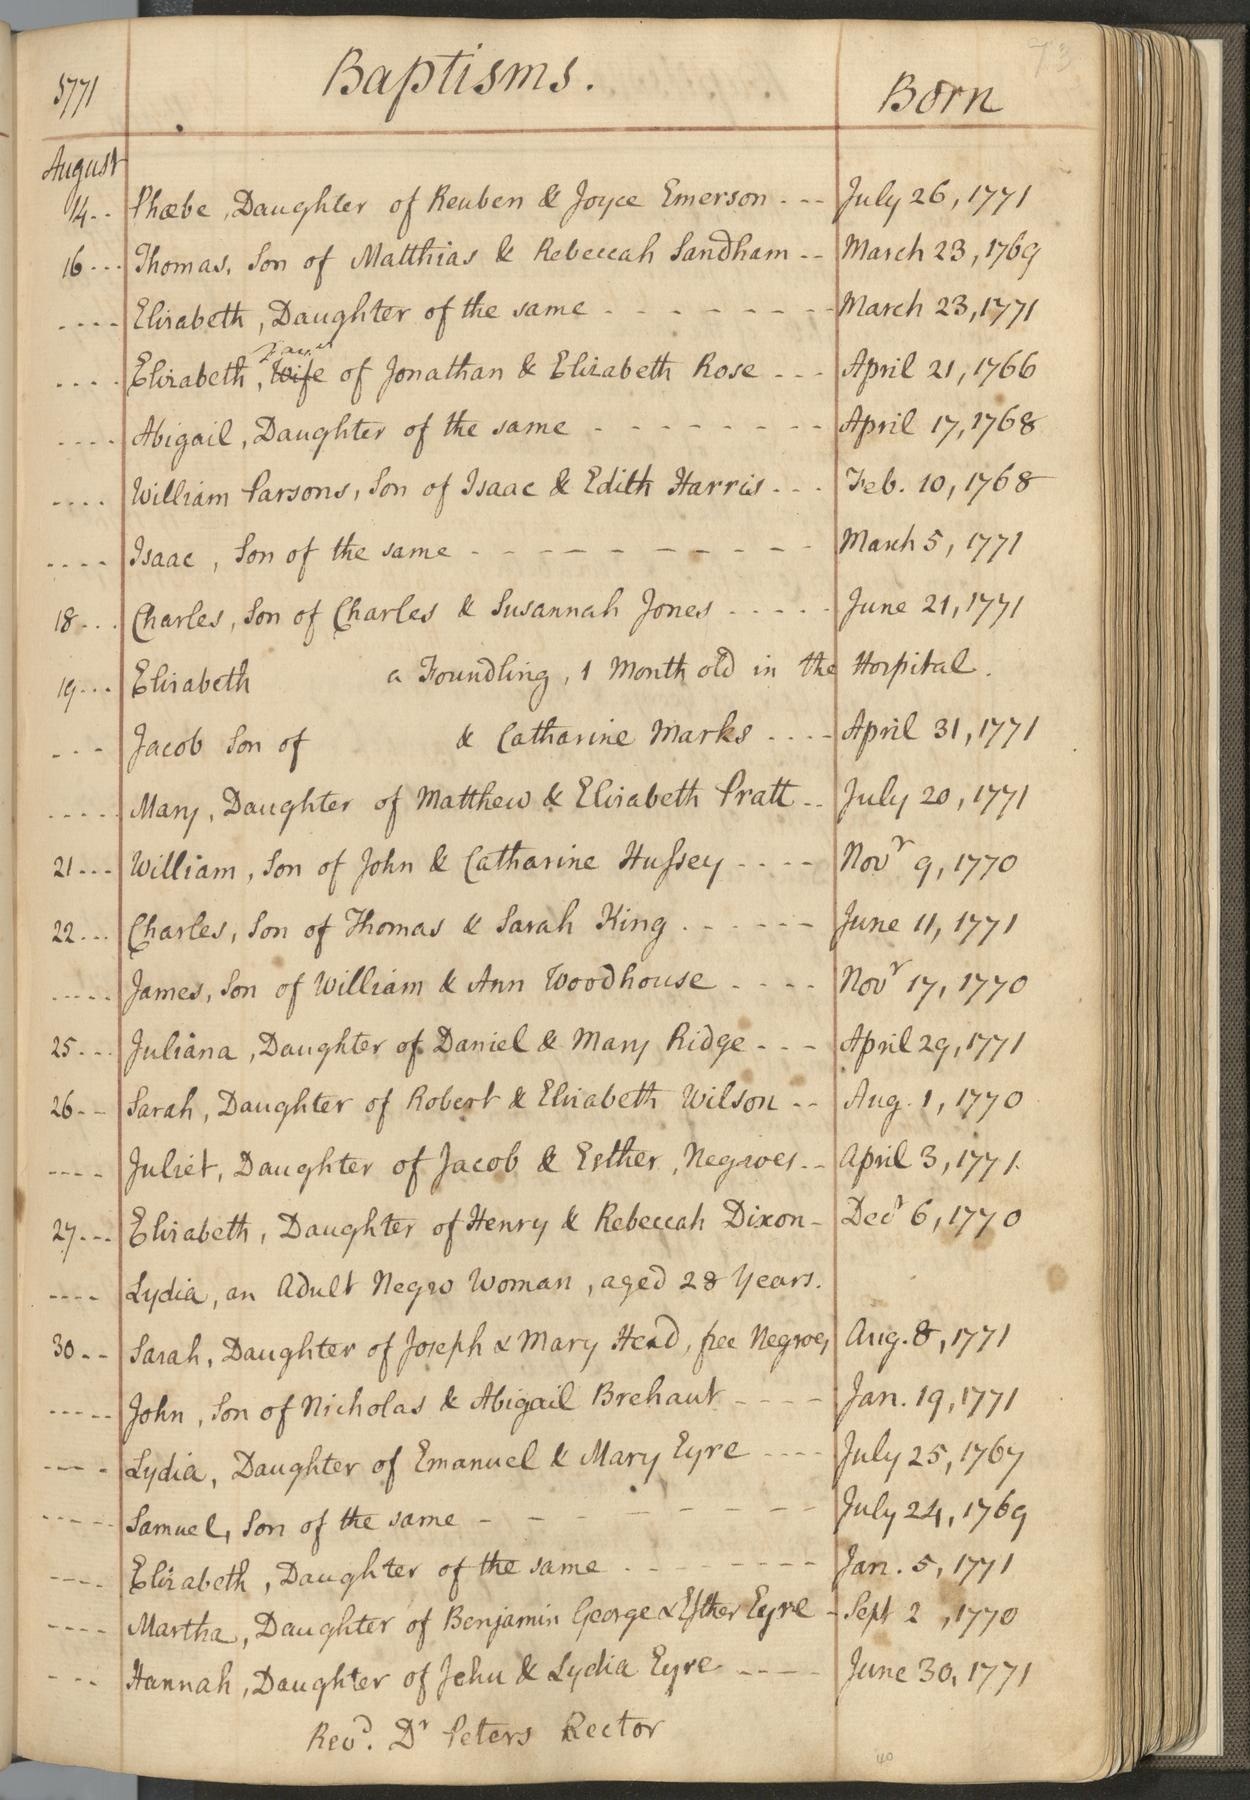 73
1771 Baptisms. Born
August
14 -- Phœbe, Daughter of Reuben & Joyce Emerson --- July 26, 1771
16 --- Thomas, Son of Matthias & Rebeccah Sandham -- March 23, 1769
---- Elisabeth, Daughter of the same - - - - - - - March 23, 1771
---- Elizabeth, Wife of Jonathan & Elizabeth Rose --- April 21, 1766
---- Abigail, Daughter of the same - - - - - - - - April 17, 1768
---- William Parsons, Son of Isaac & Edith Harris --- Feb. 10, 1768
---- Isaac, Son of the same - - - - - - - - - - March 5, 1771
18 --- Charles, Son of Charles & Susannah Jones ----- June 21, 1771
19 --- Elisabeth a Foundling, 1 Month old in the Hospital.
--- Jacob Son of & Catharine Marks ---- April 31, 1771
----- Mary, Daughter of Matthew & Elisabeth Pratt -- July 20, 1771
21 --- William, Son of John & Catharine Hussey ---- Novr 9, 1770
22 --- Charles, Son of Thomas & Sarah King ------ June 11, 1771
----- James, Son of William & Ann Woodhouse ---- Novr 17, 1770
25 --- Juliana, Daughter of Daniel & Mary Ridge --- April 29, 1771
26 -- Sarah, Daughter of Robert & Elisabeth Wilson -- Aug. 1, 1770
---- Juliet, Daughter of Jacob & Esther, Negroes -- April 3, 1771.
27 --- Elisabeth, Daughter of Henry & Rebeccah Dixon - Decr 6, 1770
---- Lydia, an Adult Negro Woman, aged 28 Years.
30 -- Sarah, Daughter of Joseph & Mary Head, free Negroes Aug. 8, 1771
----- John, Son of Nicholas & Abigail Brehaut ---- Jan. 19, 1771
---- Lydia, Daughter of Emanuel & Mary Eyre ---- July 25, 1767
----- Samuel, Son of the same - - - - - - - July 24, 1769
---- Elizabeth, Daughter of the same -------- Jan. 5, 1771
---- Martha, Daughter of Benjamin George & Esther Eyre - Sept 2, 1770
--- Hannah, Daughter of Jehu & Lydia Eyre ---- June 30, 1771
Revd. Dr Peters Rector